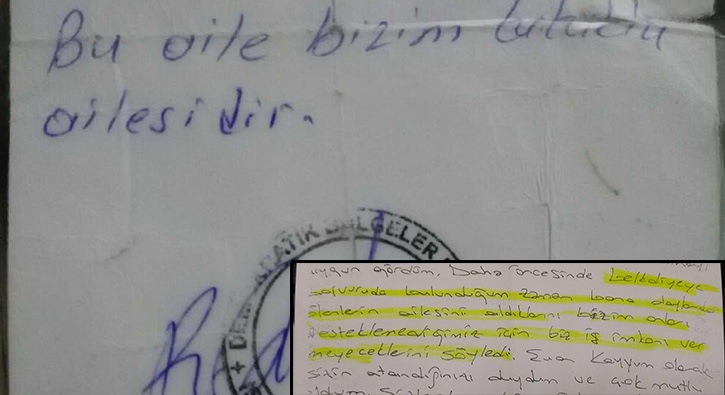 Bu aile bizim tutuklu
ailesidir.
DEMOKRATİK BÖLGELER
uygun gördüm. Daha öncesinde belediyeye
başvuruda bulunduğum zaman bana dağlarda
ölenlerin ailesini aldıklarını bizim onları
desteklemediğimiz için biz iş imkanı ver
meyeceklerini söyledi. Şuan Kayyum olarak
sizin atandığınızı duydum ve çok mutlu